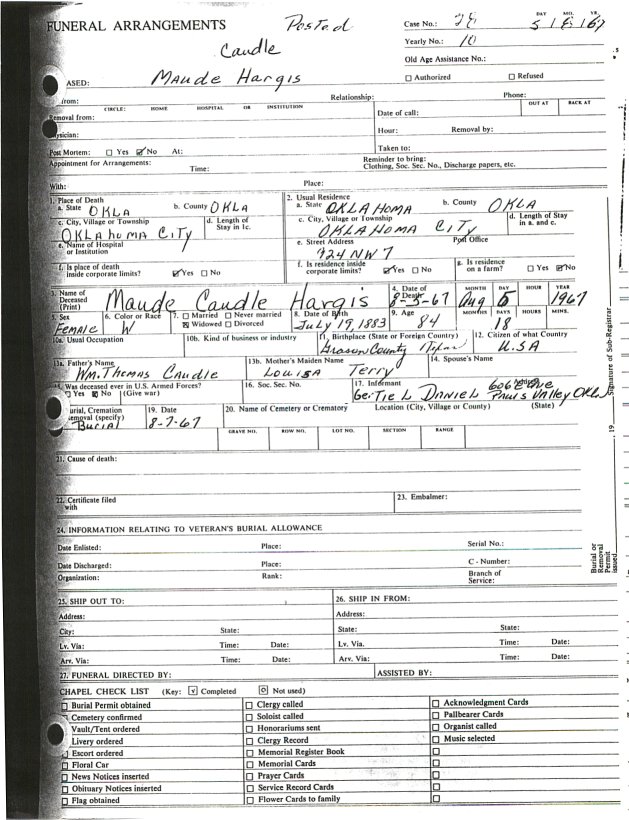 FUNERAL ARRANGEMENTS Posted Case No.: 28 DAY MO. YR. 5 / 8 / 67
Caudle Yearly No.: 10
Old Age Assistance No.:
ASED: Maude Hargis □ Authorized □ Refused
from: Relationship: Phone:
CIRCLE: HOME HOSPITAL OR INSTITUTION OUT AT BACK AT
Removal from: Date of call:
ysician: Hour: Removal by:
Post Mortem: □ Yes ☑ No At: Taken to:
Appointment for Arrangements: Time: Reminder to bring:
Clothing, Soc. Sec. No., Discharge papers, etc.
With: Place:
1. Place of Death 2. Usual Residence
a. State OKLA b. County OKLA a. State OKLAHOMA b. County OKLA
c. City, Village or Township d. Length of Stay in 1c. c. City, Village or Township d. Length of Stay in a. and c.
OKLAHOMA CITY OKLAHOMA CITY
e. Name of Hospital or Institution e. Street Address Post Office
924 NW 7
f. Is place of death inside corporate limits? ☑ Yes □ No f. Is residence inside corporate limits? ☑ Yes □ No g. Is residence on a farm? □ Yes ☑ No
3. Name of Deceased (Print) Maude Caudle Hargis 4. Date of Death 8-5-67 MONTH Aug DAY 5 HOUR YEAR 1967
5. Sex Female 6. Color or Race W 7. □ Married □ Never married ☒ Widowed □ Divorced 8. Date of Birth July 19, 1883 9. Age 84 MONTHS DAYS 18 HOURS MINS.
10a. Usual Occupation 10b. Kind of business or industry 11. Birthplace (State or Foreign Country) Grason County Texas 12. Citizen of what Country U.S.A
13a. Father's Name Wm. Thomas Caudle 13b. Mother's Maiden Name Louisa Terry 14. Spouse's Name
15. Was deceased ever in U.S. Armed Forces? □ Yes ☒ No (Give war) 16. Soc. Sec. No. 17. Informant Gertie L Daniel Address Pauls Valley Okla
urial, Cremation emoval (specify) Burial 19. Date 8-7-67 20. Name of Cemetery or Crematory Location (City, Village or County) (State)
GRAVE NO. ROW NO. LOT NO. SECTION RANGE
21. Cause of death:
22. Certificate filed with 23. Embalmer:
24. INFORMATION RELATING TO VETERAN'S BURIAL ALLOWANCE
Date Enlisted: Place: Serial No.:
Date Discharged: Place: C - Number:
Organization: Rank: Branch of Service:
25. SHIP OUT TO: 26. SHIP IN FROM:
Address: Address:
City: State: State: State:
Lv. Via: Time: Date: Lv. Via. Time: Date:
Arv. Via: Time: Date: Arv. Via: Time: Date:
27. FUNERAL DIRECTED BY: ASSISTED BY:
CHAPEL CHECK LIST (Key: ☑ Completed Not used)
□ Burial Permit obtained □ Clergy called □ Acknowledgment Cards
□ Cemetery confirmed □ Soloist called □ Pallbearer Cards
□ Vault/Tent ordered □ Honorariums sent □ Organist called
□ Livery ordered □ Clergy Record □ Music selected
□ Escort ordered □ Memorial Register Book □
□ Floral Car □ Memorial Cards □
□ News Notices inserted □ Prayer Cards □
□ Obituary Notices inserted □ Service Record Cards □
□ Flag obtained □ Flower Cards to family □
Signature of Sub-Registrar
, 19
Burial or Removal Permit issued